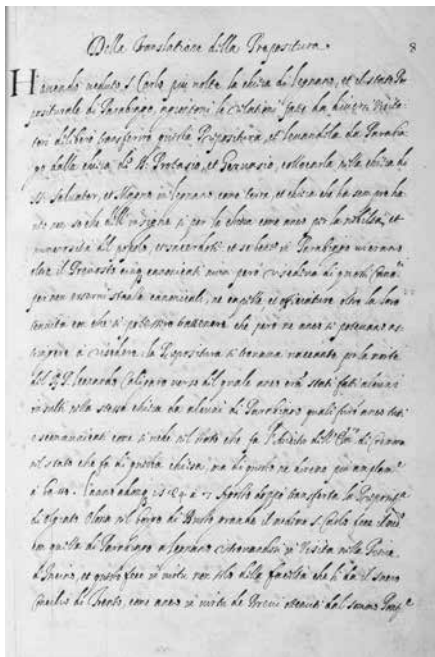 Della Translatione della Prepositura. 8
Havendo veduto S. Carlo più volte la chiesa di Legnano, et il stato Pre
positurale di Parabiago, le relationi fatte da diversi Visita
tori deliberò transferire questa Prepositura, et levandola da Parabia
go dalla chiesa di SS. Protasio, et Gervasio, collocarla nella chiesa di
SS. Salvator, et Magno in Legnano come terra, et chiesa che ha sempre ha
uto non so che dell' insigne si per la chiesa come anco per la nobiltà, et
numerosità del popolo, et sacerdoti et se bene in Parabiago
oltre il Prevosto cinq. canonicati non però residenza di
per non esservi canonicali, ne oltre la loro
tenuità con che si potessero trattenere che però ne anco si potevano as
tringere a risedere. la Prepositura si trovava vacante per la morte
del Leonardo verso del quale anco eran stati fatti alcuni
insulti nella stessa chiesa da alcuni di Parabiago quali anco tutti
come si vede nel che fa di Cremona
nel stato che fa di questa chiesa, ma di questo ne diremo più
a basso. l'anno adonq. 1584 a 7 Agosto doppo transferta la
di Olgiato Olona nel borgo di Busto grande il medemo S. Carlo fece
con quella di Parabiago a Legnano ritrovandosi in Visita nella Pieve
d'Incino, et questo fece in virtù non solo della facoltà che li da il sacro
Concilio di Trento, come anco in virtù de Brevi ottenuti dal sommo